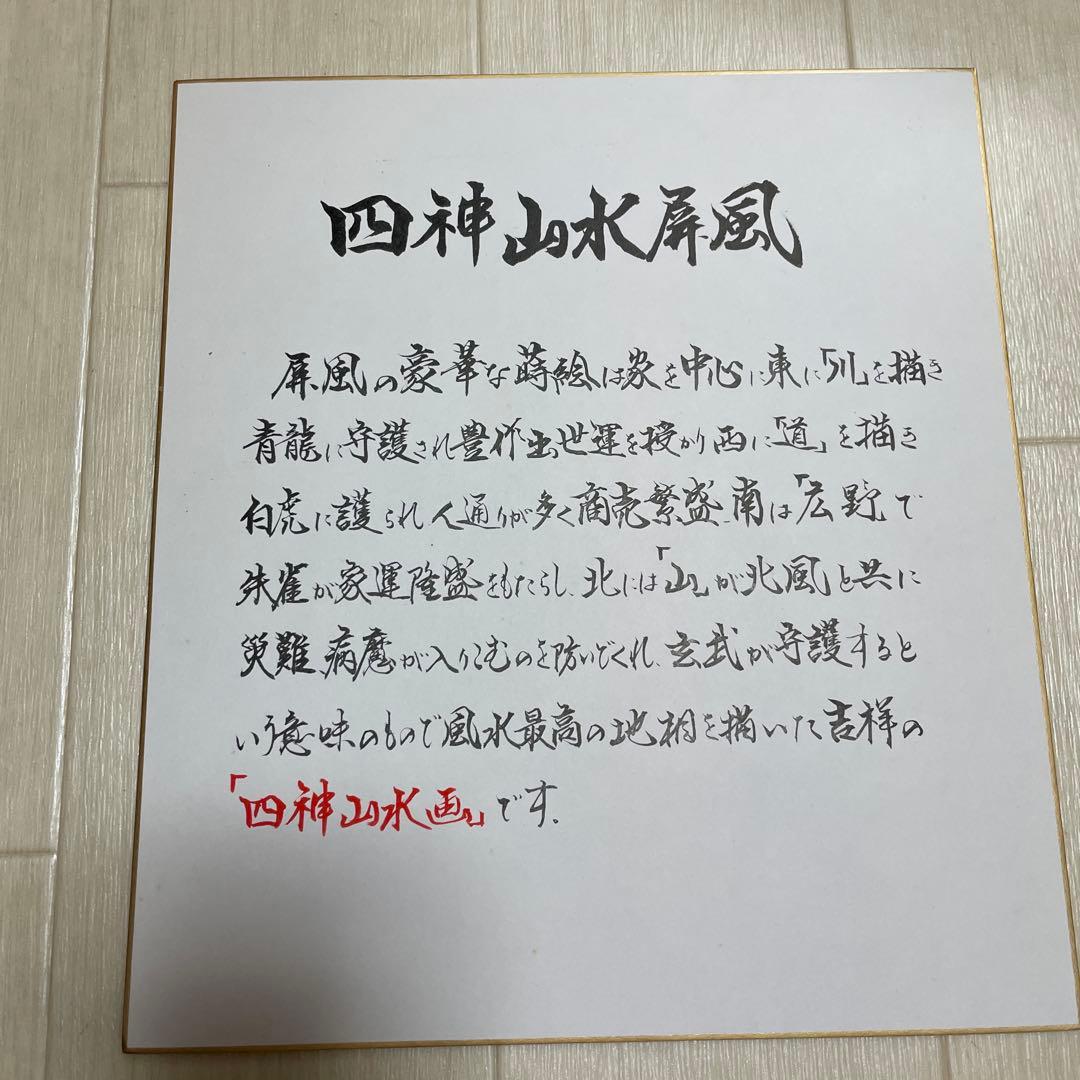 四神山水屏風
屏風の豪華な蒔絵は家を中心に東に「川」を描き
青龍に守護され豊作出世運を授かり西に「道」を描き
白虎に護られ人通りが多く商売繁盛、南は「広野」で
朱雀が家運隆盛をもたらし、北には「山」が北風と共に
災難、病魔が入りこむのを防いでくれ、玄武が守護すると
いう意味のもので風水最高の地相を描いた吉祥の
「四神山水画」です。